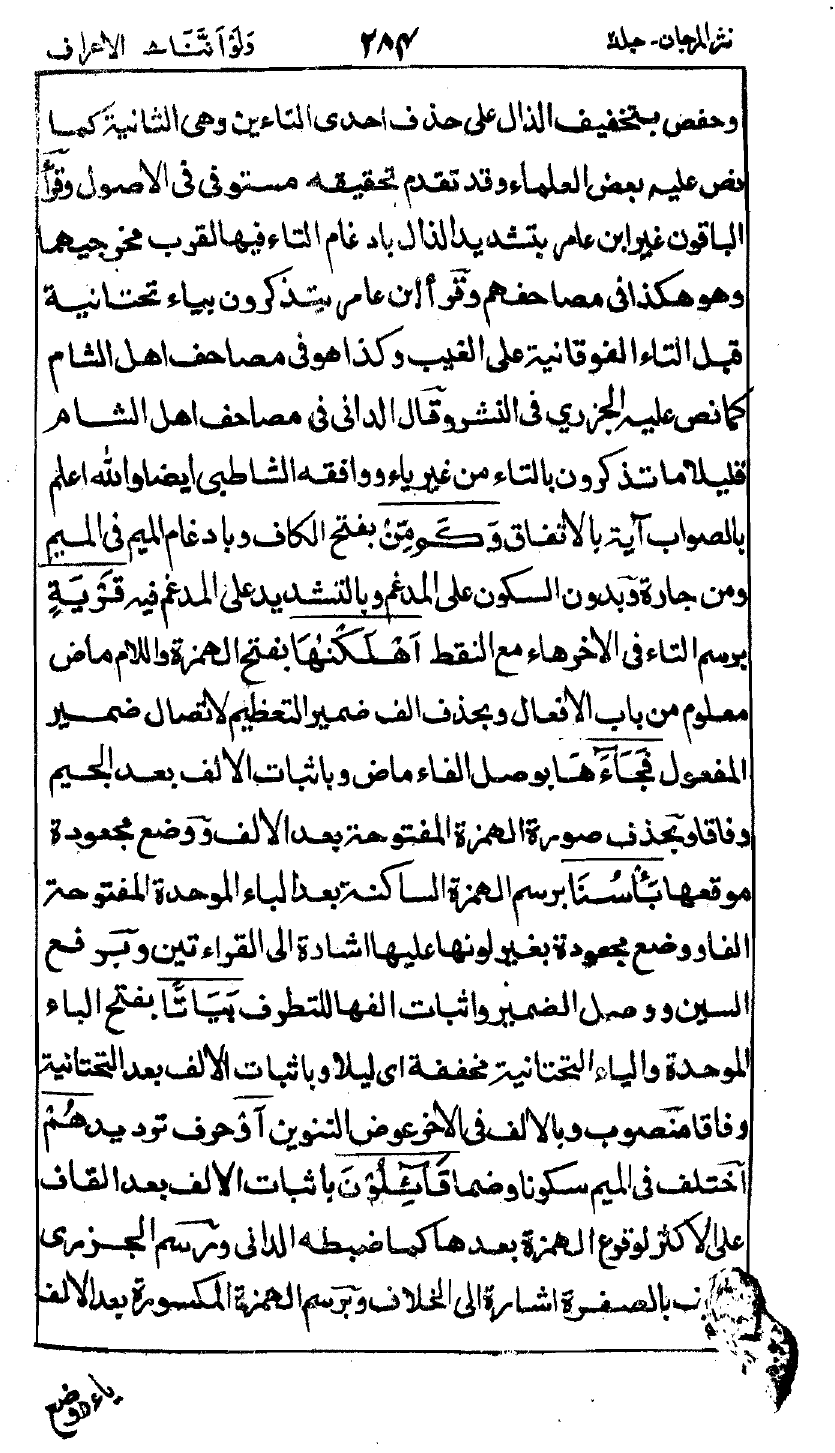 نثر المرجان - جلد٢ ٢٨٤ ولو اننا ث الاعراف
وحفص بتخفيف الذال على حذف احدى التاءين وهى الثانية كما
نص عليه بعض العلماء وقد تقدم تحقيقه مستوفى فى الاصول وقرأ
الباقون غير ابن عامر بتشديد الذال بادغام التاء فيها لقرب مخرجيهما
وهو هكذا فى مصاحفهم وقرأ ابن عامر يتذكرون بياء تحتانية
قبل التاء الفوقانية على الغيب وكذا هو فى مصاحف اهل الشام
كما نص عليه الجزري فى النشر وقال الدانى فى مصاحف اهل الشام
قليلا ما تتذكرون بالتاء من غير ياء ووافقه الشاطبى ايضا والله اعلم
بالصواب آية بالاتفاق وَكَم مِّنْ بفتح الكاف وبادغام الميم فى الميم
ومن جارة وبدون السكون على المدغم وبالتشديد على المدغم فيه قَرْيَةٍ
برسم التاء فى الاخر هاء مع النقط اَهْلَكْنٰهَا بفتح الهمزة واللام ماض
معلوم من باب الافعال وبحذف الف ضمير التعظيم لاتصال ضمير
المفعول فَجَاءَهَا بوصل الفاء ماض وباثبات الالف بعد الجيم
وفاقا وبحذف صورة الهمزة المفتوحة بعد الالف ووضع مجعودة
موقعها بَأْسُنَا برسم الهمزة الساكنة بعد الباء الموحدة المفتوحة
الفا ووضع مجعودة بغير لونها عليها اشارة الى القراءتين وبرفع
السين ووصل الضمير واثبات الفها للتطرف بَيَاتًا بفتح الباء
الموحدة والياء التحتانية مخففة اى ليلا وباثبات الالف بعد التحتانية
وفاقا منصوب وبالالف فى الاخر عوض التنوين اَوْ حرف ترديد هُمْ
اختلف فى الميم سكونا وضما قَائِلُوْنَ باثبات الالف بعد القاف
على الاكثر لوقوع الهمزة بعدها كما ضبطه الدانى ورسم الجزرى
بالصفرة اشارة الى الخلاف وبرسم الهمزة المكسورة بعد الالف
ياء ووضع